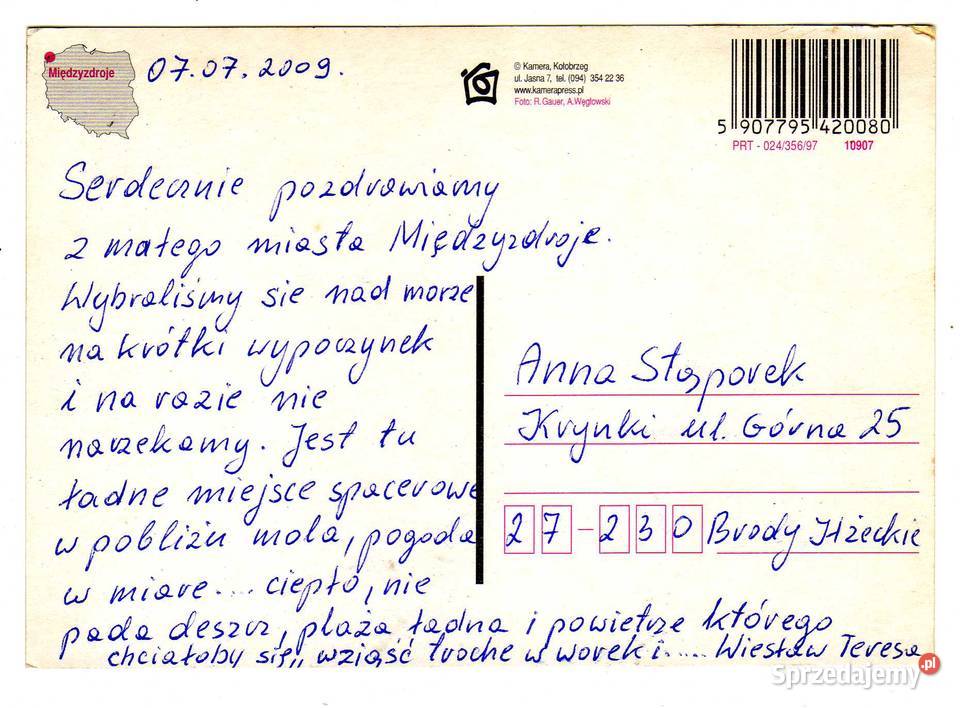 Międzyzdroje
07.07.2009.
© Kamera, Kołobrzeg
ul. Jasna 7, tel. (094) 354 22 36
www.kamerapress.pl
Foto: R. Gauer, A.Węglowski
5 907795 420080
PRT - 024/356/97 10907
Serdecznie pozdrawiamy
z małego miasta Międzyzdroje.
Wybraliśmy sie nad morze
na krótki wypoczynek
i na razie nie
narzekamy. Jest tu
ładne miejsce spacerowe
w pobliżu mola, pogoda
w miare.... ciepło, nie
pada deszcz, plaża ładna i powietrze którego
chciałoby się „ wziąść troche w worek i..... Wiesław Teresa
Anna Stąporek
Krynki ul. Górna 25
27-230 Brody Iłżeckie
Sprzedajemy.pl